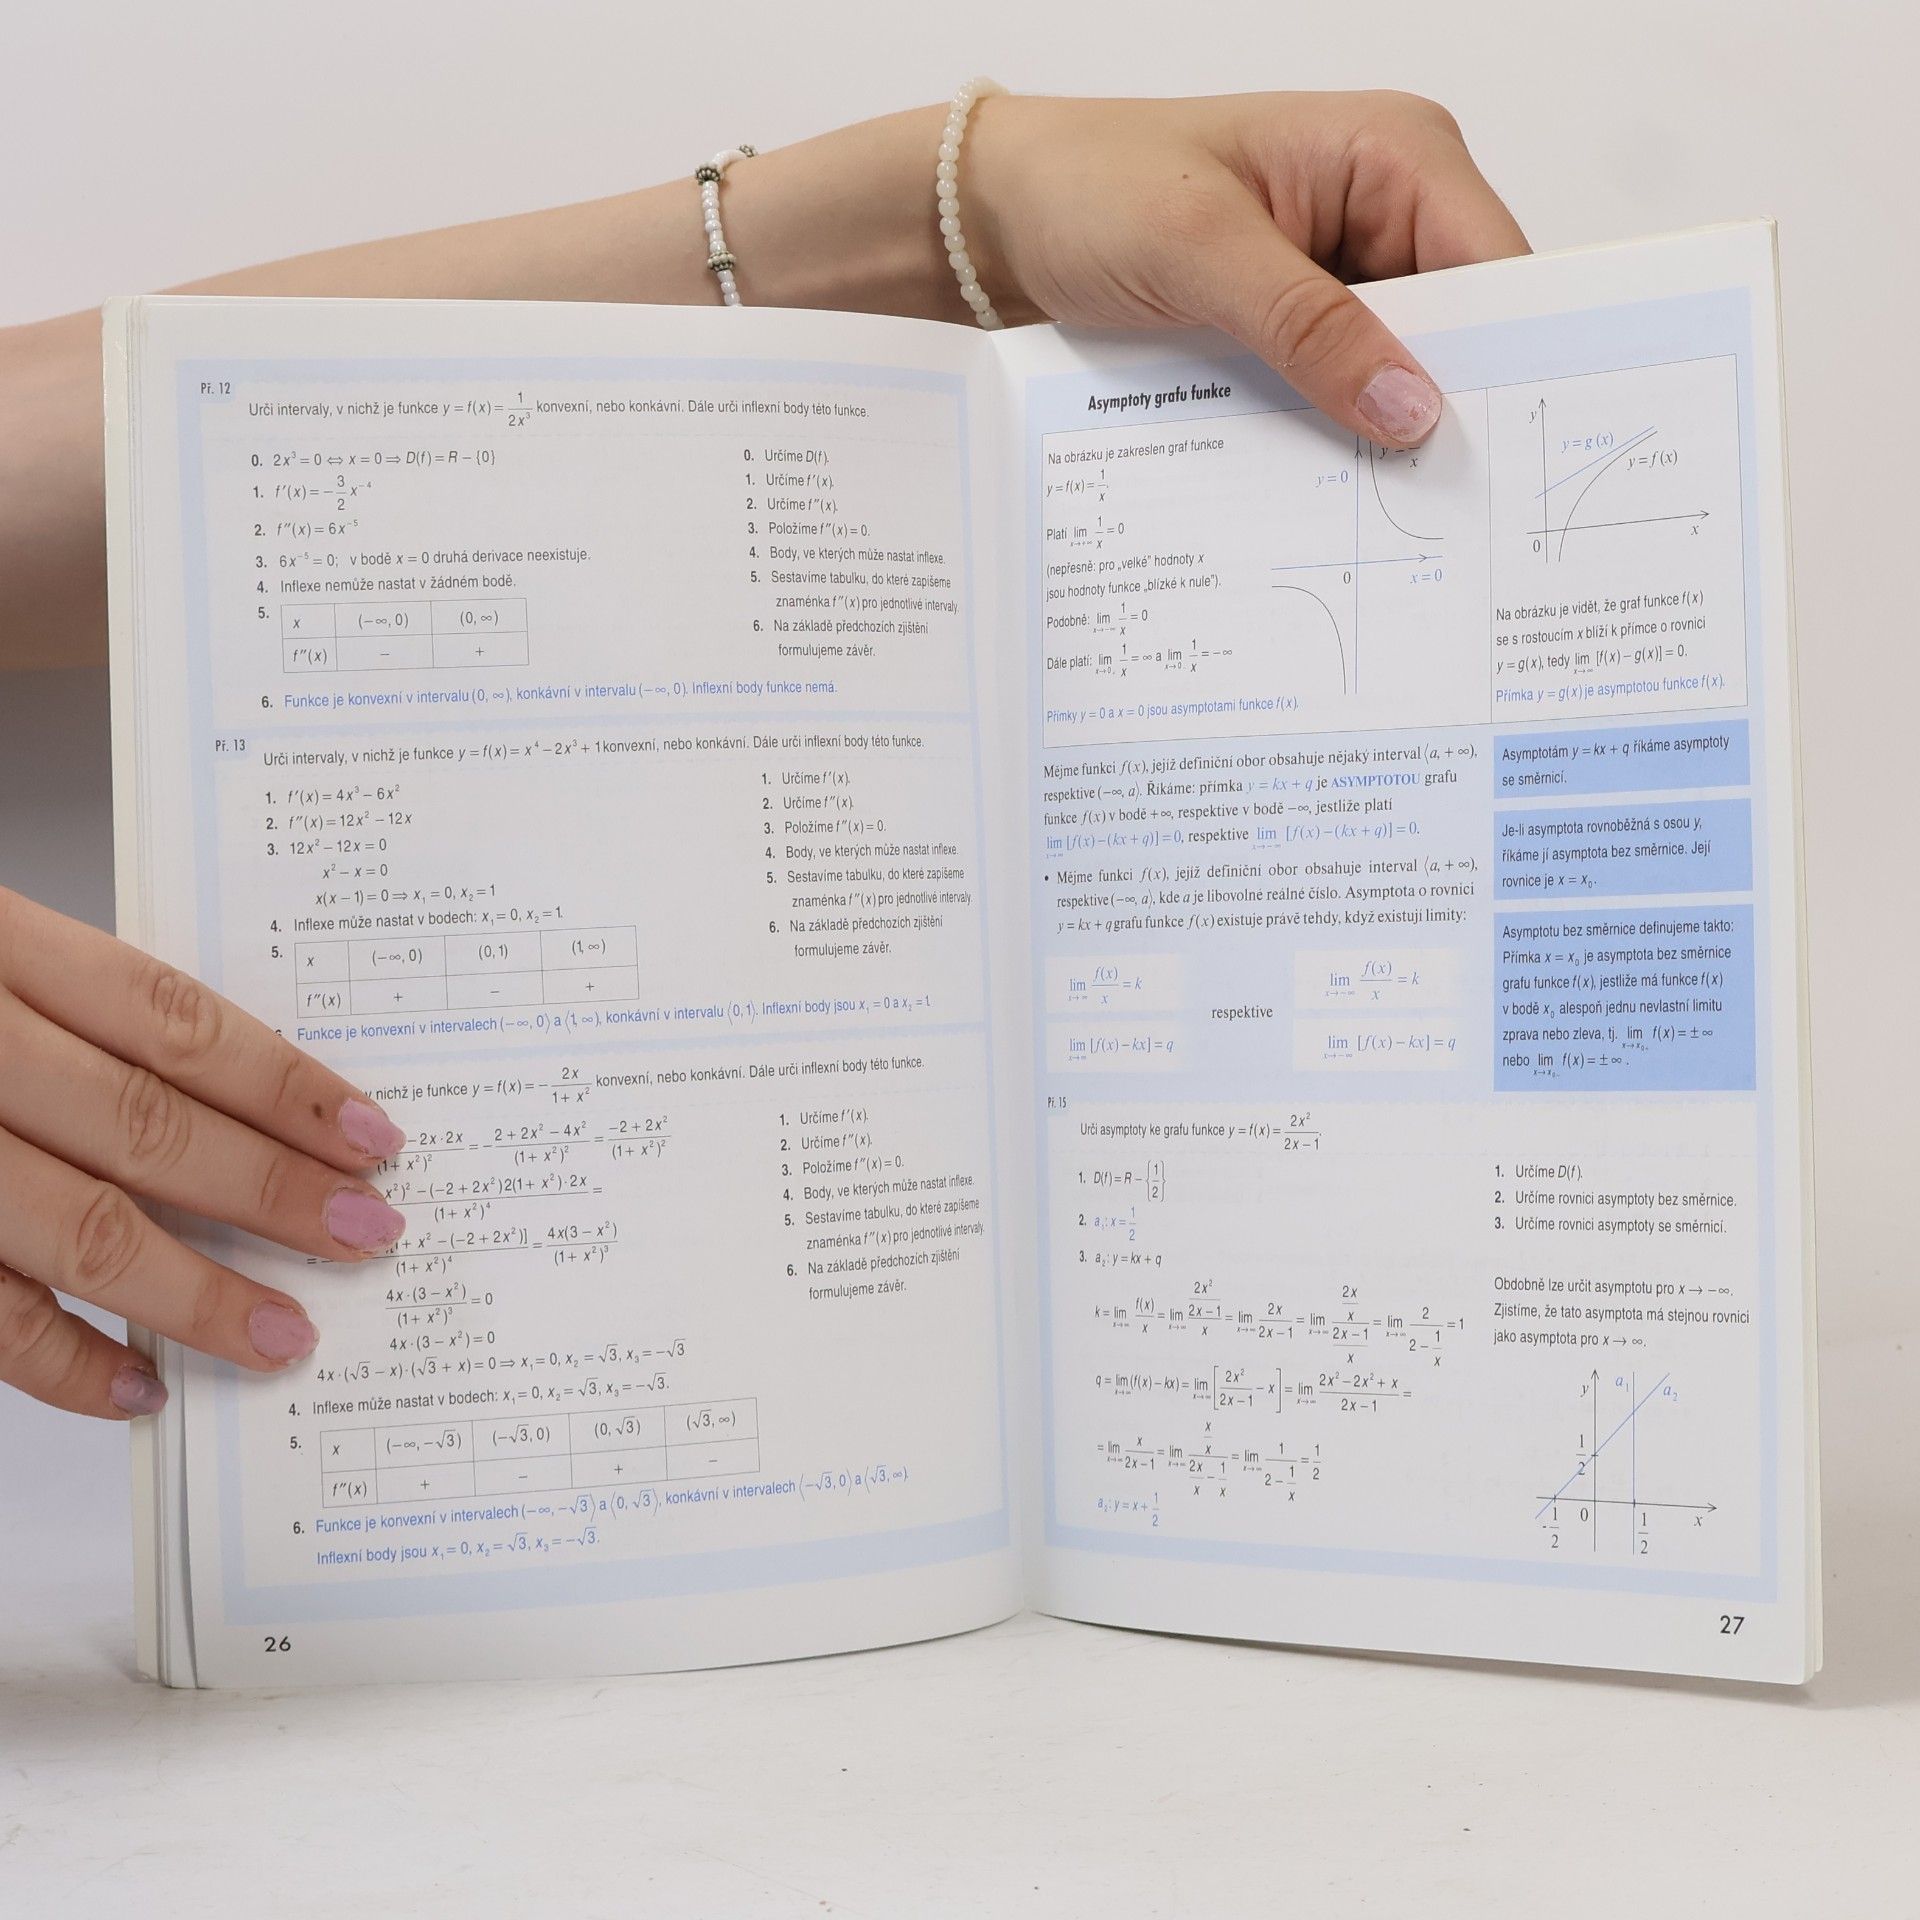 Př. 12
Urči intervaly, v nichž je funkce y = f(x) = 1/2x³ konvexní, nebo konkávní. Dále urči inflexní body této funkce.
0. 2x³ = 0 ⇔ x = 0 ⇒ D(f) = R – {0}
1. f′(x) = –3/2 x⁻⁴
2. f″(x) = 6x⁻⁵
3. 6x⁻⁵ = 0; v bodě x = 0 druhá derivace neexistuje.
4. Inflexe nemůže nastat v žádném bodě.
5.
x (–∞, 0) (0, ∞)
f″(x) – +
0. Určíme D(f).
1. Určíme f′(x).
2. Určíme f″(x).
3. Položíme f″(x) = 0.
4. Body, ve kterých může nastat inflexe.
5. Sestavíme tabulku, do které zapíšeme
znaménka f″(x) pro jednotlivé intervaly.
6. Na základě předchozích zjištění
formulujeme závěr.
6. Funkce je konvexní v intervalu (0, ∞), konkávní v intervalu (–∞, 0). Inflexní body funkce nemá.
Př. 13
Urči intervaly, v nichž je funkce y = f(x) = x⁴ – 2x³ + 1 konvexní, nebo konkávní. Dále urči inflexní body této funkce.
1. f′(x) = 4x³ – 6x²
2. f″(x) = 12x² – 12x
3. 12x² – 12x = 0
x² – x = 0
x(x – 1) = 0 ⇒ x₁ = 0, x₂ = 1
4. Inflexe může nastat v bodech: x₁ = 0, x₂ = 1.
5.
x (–∞, 0) (0, 1) (1, ∞)
f″(x) + – +
1. Určíme f′(x).
2. Určíme f″(x).
3. Položíme f″(x) = 0.
4. Body, ve kterých může nastat inflexe.
5. Sestavíme tabulku, do které zapíšeme
znaménka f″(x) pro jednotlivé intervaly.
6. Na základě předchozích zjištění
formulujeme závěr.
Funkce je konvexní v intervalech (–∞, 0⟩ a ⟨1, ∞), konkávní v intervalu ⟨0, 1⟩. Inflexní body jsou x₁ = 0 a x₂ = 1.
v nichž je funkce y = f(x) = –2x/(1 + x²) konvexní, nebo konkávní. Dále urči inflexní body této funkce.
– 2x·2x/(1 + x²)² = –(2 + 2x² – 4x²)/(1 + x²)² = (–2 + 2x²)/(1 + x²)²
x²)² – (–2 + 2x²)2(1 + x²)·2x/(1 + x²)⁴ =
+ x² – (–2 + 2x²)]/(1 + x²)⁴ = 4x(3 – x²)/(1 + x²)³
4x·(3 – x²)/(1 + x²)³ = 0
4x·(3 – x²) = 0
4x·(√3 – x)·(√3 + x) = 0 ⇒ x₁ = 0, x₂ = √3, x₃ = –√3
4. Inflexe může nastat v bodech: x₁ = 0, x₂ = √3, x₃ = –√3.
5.
x (–∞, –√3) (–√3, 0) (0, √3) (√3, ∞)
f″(x) + – + –
1. Určíme f′(x).
2. Určíme f″(x).
3. Položíme f″(x) = 0.
4. Body, ve kterých může nastat inflexe.
5. Sestavíme tabulku, do které zapíšeme
znaménka f″(x) pro jednotlivé intervaly.
6. Na základě předchozích zjištění
formulujeme závěr.
6. Funkce je konvexní v intervalech (–∞, –√3⟩ a ⟨0, √3⟩, konkávní v intervalech ⟨–√3, 0⟩ a ⟨√3, ∞).
Inflexní body jsou x₁ = 0, x₂ = √3, x₃ = –√3.
26
Asymptoty grafu funkce
Na obrázku je zakreslen graf funkce
y = f(x) = 1/x.
Platí lim x→+∞ 1/x = 0
(nepřesně: pro „velké" hodnoty x
jsou hodnoty funkce „blízké k nule").
Podobně: lim x→–∞ 1/x = 0
Dále platí: lim x→0₊ 1/x = ∞ a lim x→0₋ 1/x = –∞
Přímky y = 0 a x = 0 jsou asymptotami funkce f(x).
y = 0
y = /x
0
x = 0
y
y = g(x)
y = f(x)
0
x
Na obrázku je vidět, že graf funkce f(x)
se s rostoucím x blíží k přímce o rovnici
y = g(x), tedy lim x→∞ [f(x) – g(x)] = 0.
Přímka y = g(x) je asymptotou funkce f(x).
Mějme funkci f(x), jejíž definiční obor obsahuje nějaký interval ⟨a, +∞),
respektive (–∞, a⟩. Říkáme: přímka y = kx + q je ASYMPTOTOU grafu
funkce f(x) v bodě +∞, respektive v bodě –∞, jestliže platí
lim x→∞ [f(x) – (kx + q)] = 0, respektive lim x→–∞ [f(x) – (kx + q)] = 0.
• Mějme funkci f(x), jejíž definiční obor obsahuje interval ⟨a, +∞),
respektive (–∞, a⟩, kde a je libovolné reálné číslo. Asymptota o rovnici
y = kx + q grafu funkce f(x) existuje právě tehdy, když existují limity:
lim x→∞ f(x)/x = k
lim x→∞ [f(x) – kx] = q
respektive
lim x→–∞ f(x)/x = k
lim x→–∞ [f(x) – kx] = q
Asymptotám y = kx + q říkáme asymptoty
se směrnicí.
Je-li asymptota rovnoběžná s osou y,
říkáme jí asymptota bez směrnice. Její
rovnice je x = x₀.
Asymptotu bez směrnice definujeme takto:
Přímka x = x₀ je asymptota bez směrnice
grafu funkce f(x), jestliže má funkce f(x)
v bodě x₀ alespoň jednu nevlastní limitu
zprava nebo zleva, tj. lim x→x₀₊ f(x) = ±∞
nebo lim x→x₀₋ f(x) = ±∞.
Př. 15
Urči asymptoty ke grafu funkce y = f(x) = 2x²/(2x – 1).
1. D(f) = R – {1/2}
2. a₁: x = 1/2
3. a₂: y = kx + q
k = lim x→∞ f(x)/x = lim x→∞ (2x²/(2x – 1))/x = lim x→∞ 2x/(2x – 1) = lim x→∞ (2x/x)/((2x – 1)/x) = lim x→∞ 2/(2 – 1/x) = 1
q = lim x→∞ (f(x) – kx) = lim x→∞ [2x²/(2x – 1) – x] = lim x→∞ (2x² – 2x² + x)/(2x – 1) =
= lim x→∞ x/(2x – 1) = lim x→∞ (x/x)/(2x/x – 1/x) = lim x→∞ 1/(2 – 1/x) = 1/2
a₂: y = x + 1/2
1. Určíme D(f).
2. Určíme rovnici asymptoty bez směrnice.
3. Určíme rovnici asymptoty se směrnicí.
Obdobně lze určit asymptotu pro x → –∞.
Zjistíme, že tato asymptota má stejnou rovnici
jako asymptota pro x → ∞.
y
a₁
a₂
1/2
–1/2
0
1/2
x
27